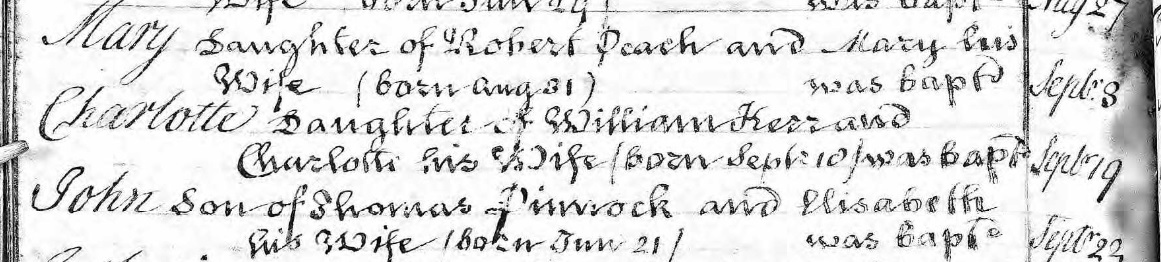 Wife (born Jun 29) was bapt Aug 27
Mary Daughter of Robert Peach and Mary his
Wife (born Aug 31) was baptd Septr 3
Charlotte Daughter of William Kerr and
Charlotte his Wife (born Septr 10) was bapt Septr 19
John Son of Thomas Pinnock and Elisabeth
his Wife (born Jun 21) was bapt Septr 23